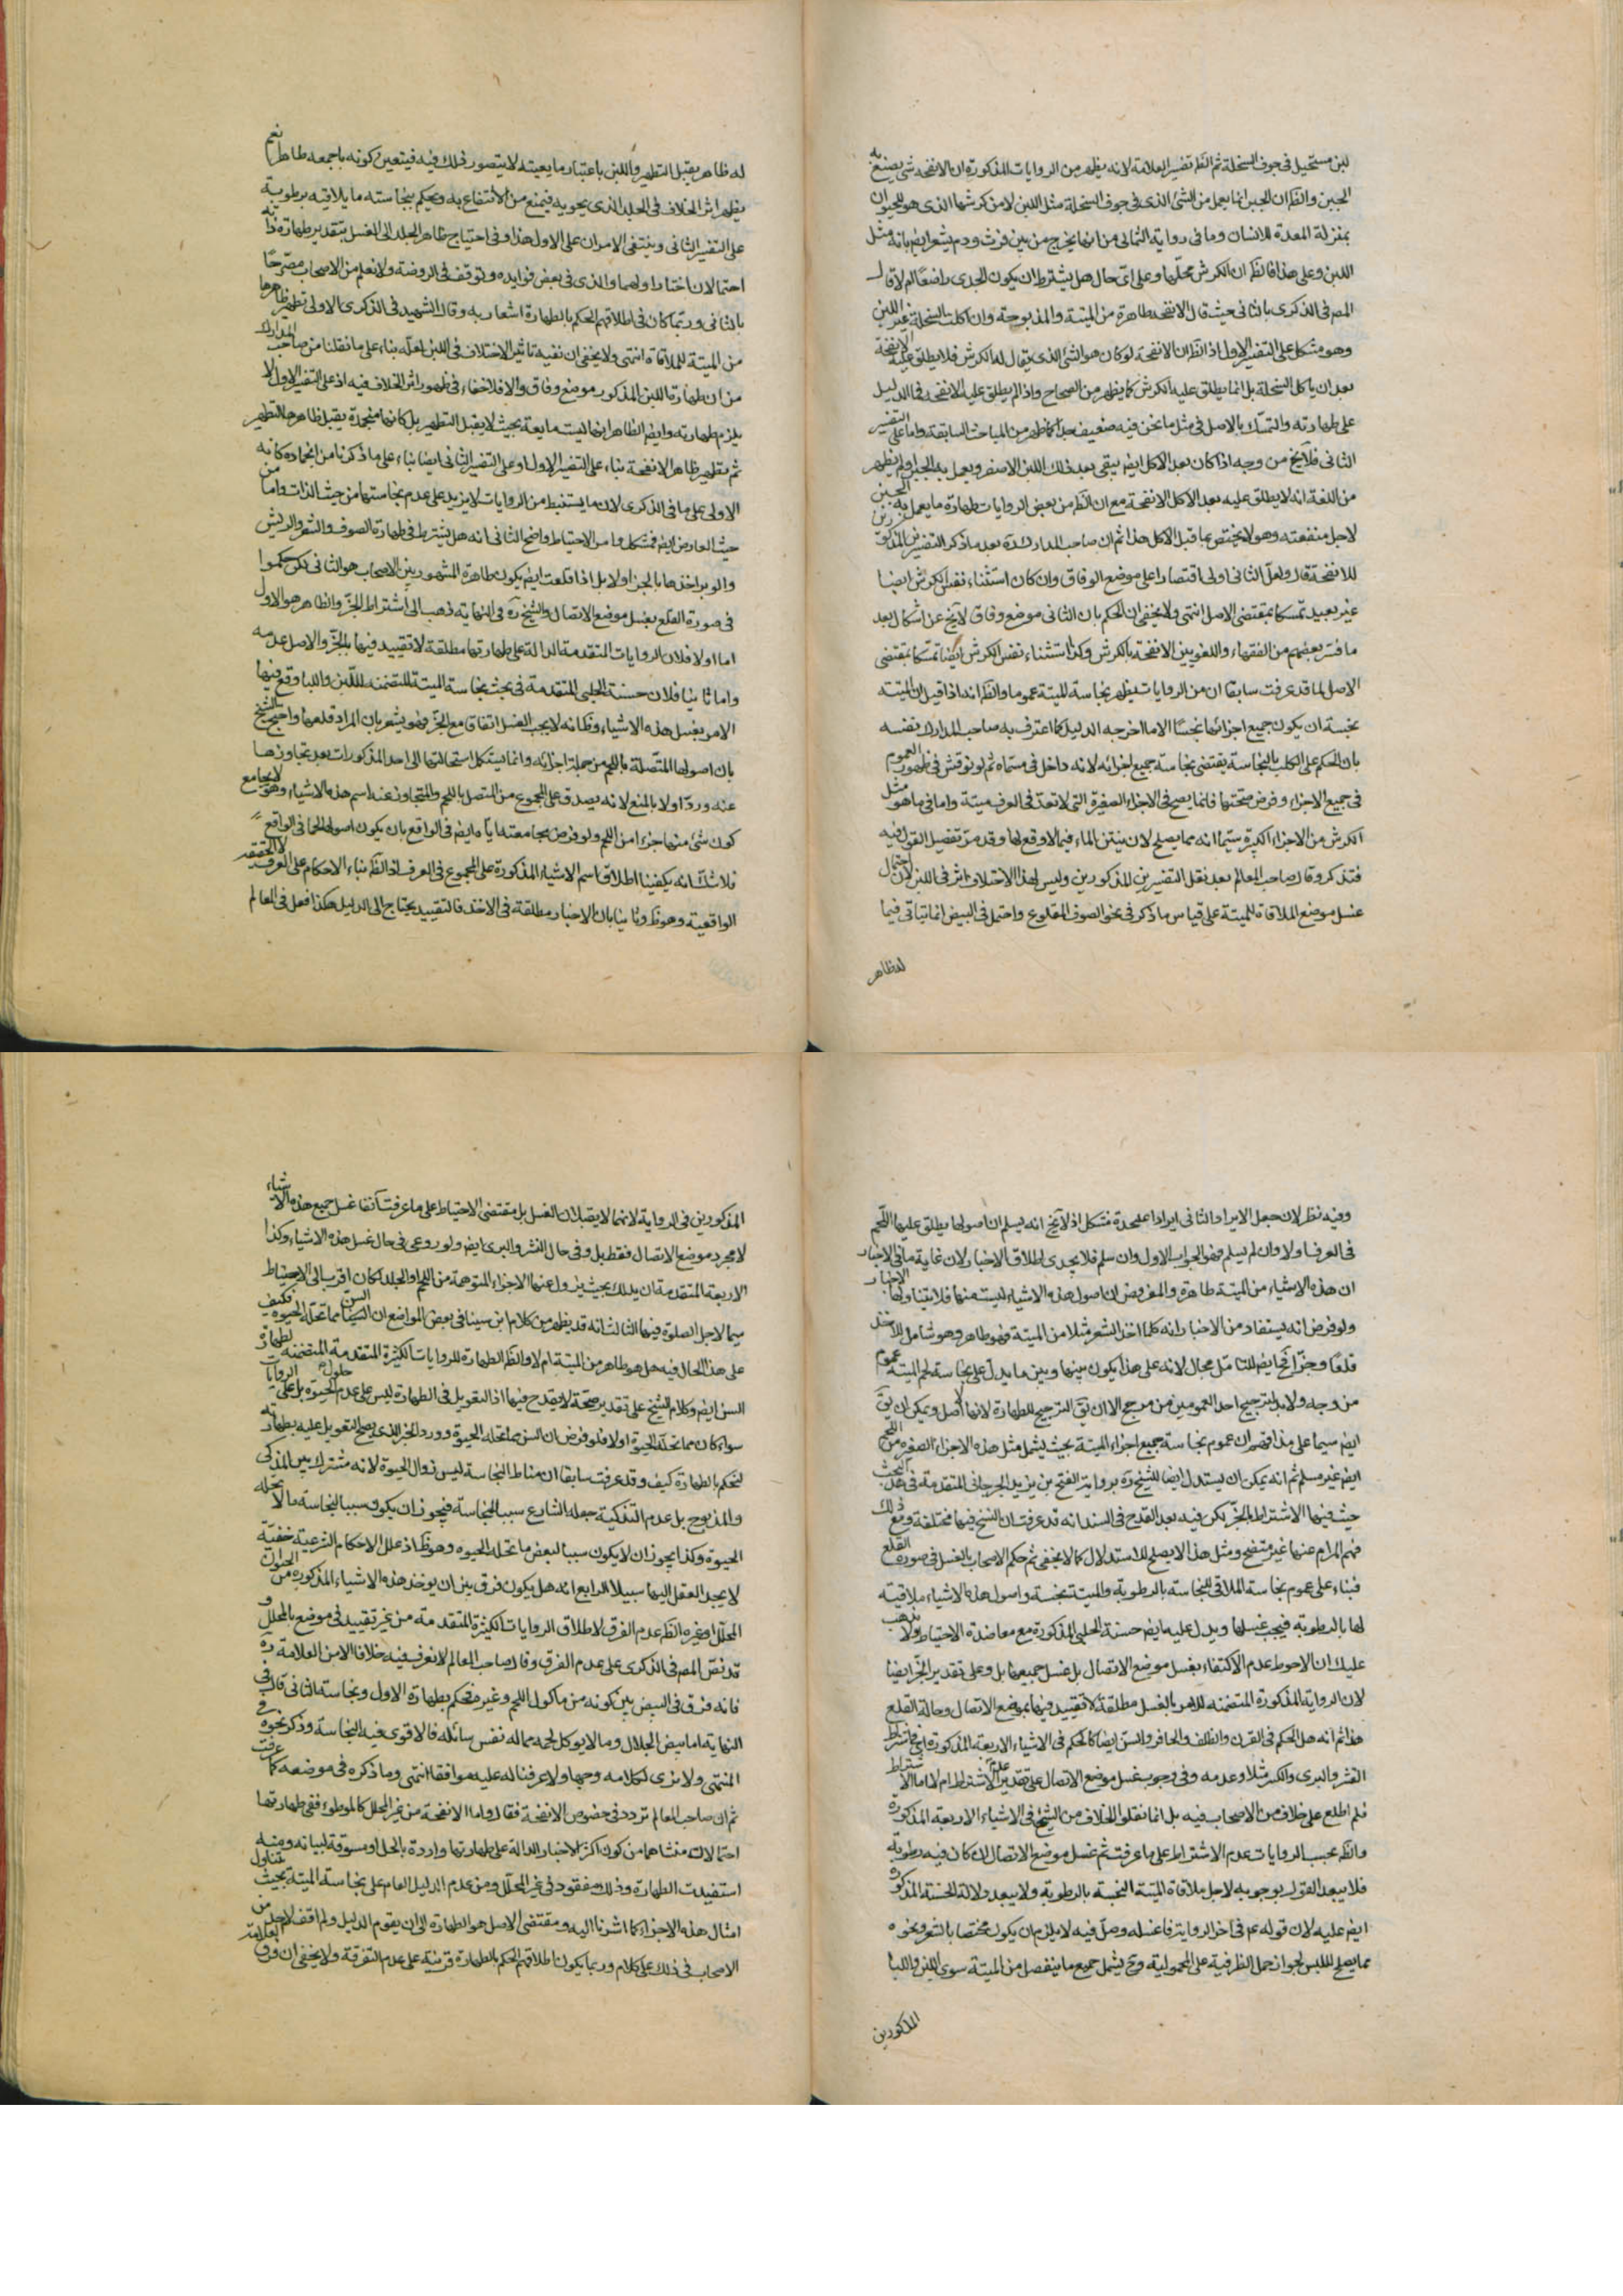 لبن مستحيل في جوف السخلة ثم الظ تفسير العلامة لانه يظهر من الروايات المذكورة ان الانفحه شئ يصنع به
الجبن والظ ان الجبن انما يعمل من الشئ الذى في جوف السخلة مثل اللبن لا من كرشها الذى هو للحيوان
بمنزلة المعدة للانسان وما في رواية الثمالى من انها يخرج من بين فرث ودم يشعر ايض بانه مثل
اللبن وعلى هذا فالظ ان الكرش محلها وعلى اى حال هل يشترط ان يكون الجدى راضعا ام لا قال
المص في الذكرى بالثانى حيث قال الانفحه طاهرة من الميتة والمذبوحة وان اكلت السخلة غير اللبن
وهو مشكل على التفسير الاول اذ الظ ان الانفحة لو كان هو الشئ الذى يقال له الكرش فلا يطلق عليه الانفحة
بعد ان ياكل السخلة بل انما يطلق عليه الكرش كما يظهر من الصحاح واذا لم يطلق عليه الانفحه فما الدليل
على طهارته والتمسك بالاصل في مثل ما نحن فيه ضعيف جدا كما ظهر من المباحث السابقة واما على التفسير
الثانى فلا يخ من وجه اذا كان بعد الاكل ايض يبقى بعد ذلك اللبن الاصفر ويعمل به الجبن اولم يظهر
من اللغة انه لا يطلق عليه بعد الاكل الانفحة مع ان الظ من بعض الروايات طهارة ما يعمل به الجبن
لاجل منفعته وهو لا يختص بما قبل الاكل هذا ثم ان صاحب المدارك ره بعد ما ذكر التفسيرين المذكورين
للانفحة قال ولعل الثانى اولى اقتصارا على موضع الوفاق وان كان استثناء نفس الكرش ايضا
غير بعيد تمسكا بمقتضى الاصل انتهى ولا يخفى ان الحكم بان الثانى موضع وفاق لا يخ عن اشكال بعد
ما فسر بعضهم من الفقهاء واللغويين الانفحة بالكرش وكذا استثناء نفس الكرش ايضا تمسكا بمقتضى
الاصل لما قد عرفت سابقا ان من الروايات يظهر نجاسة الميتة عموما والظ انه اذا قيل ان الميتة
نجسة ان يكون جميع اجزائها نجسا الا ما اخرجه الدليل كما اعترف به صاحب المدارك نفسه
بان الحكم على الكلب بالنجاسة يقتضى نجاسة جميع اجزائه لانه داخل في مسماه ثم لو نوقش في ظهور العموم
في جميع الاجزاء وفرض صحتها فانما يصح في الاجزاء الصغيرة التى لا تعد في العرف ميتة واما في ما هو مثل
الكرش من الاجزاء الكبيرة سيما انه مما يصلح لان ينتن الماء فيما لا وقع لها وقد مر تفضيل القول فيه
فتذكر وقال صاحب المعالم بعد نقل التفسيرين المذكورين وليس لهذا الاختلاف اثر في اللبن لان احتمال
غسل موضع الملاقاة للميتة على قياس ما ذكر في نحو الصوف المقلوع واحتمل في البيض انما يتاتى فيما
له ظاهر
له ظاهر يقبل التطهير واللبن باعتبار ما يعيته لا يتصور ذلك فيه فيتعين كونه باجمعه طاهرا نعم
يظهر اثر الخلاف في الجلد الذى يحويه فيمنع من الانتفاع به ويحكم بنجاسته ما يلاقيه برطوبة
على التفسير الثانى وينتفى الامران على الاول هذا وفى احتياج ظاهر الجلد الى الغسل بتقدير طهارة ذاته
احتمالان اختار اولهما والدى في بعض فوايده وتوقف في الروضة ولا نعلم من الاصحاب مصرحا
بالثانى وربما كان في اطلاقهم الحكم بالطهارة اشعار به وقال الشهيد في الذكرى الاولى تطهير ظاهرها
من الميتة للملاقاة انتهى ولا يخفى ان نفيه تاثير الاختلاف في اللبن لعله بناء على ما نقلنا من صاحب المدارك
من ان طهارة اللبن المذكور موضع وفاق والا فلا خفاء في ظهور اثر الخلاف فيه اذ على التفسير الاول لا
يلزم طهارته وايض الظاهر انها ليست مايعة بحيث لا يقبل التطهير بل كانها منجمدة يقبل ظاهرها التطهير
ثم تطهير ظاهر الانفحة بناء على التفسير الاول او على التفسير الثانى ايضا بناء على ما ذكرنا من انجماده كانه
الاولى على ما في الذكرى لان ما يستنبط من الروايات لا يزيد على عدم نجاستها من حيث الذات واما من
حيث العارض ايض فمشكل وامر الاحتياط واضح الثانى انه هل يشترط في طهارة الصوف والشعر والريش
والوبر اخذها بالجز اولا بل اذا قلعت ايض يكون طاهرة المشهور بين الاصحاب هو الثانى لكن حكموا
في صورة القلع بغسل موضع الاتصال والشيخ ره في النهاية ذهب الى اشتراط الجز والظاهر هو الاول
اما اولا فلان الروايات المتقدمة الدالة على طهارتها مطلقة لا تقييد فيها بالجز والاصل عدمه
واما ثانيا فلان حسنة الحلبى المتقدمة في بحث نجاسة الميتة المتضمنه للبن واللبا وقع فيها
الامر بغسل هذه الاشياء وظ انه لا يجب الغسل اتفاقا مع الجز فهو يشعر بان المراد قلعها واحتج الشيخ
بان اصولها المتصلة باللحم من جملة اجزائه وانما يستكمل استحالتها الى احد المذكورات بعد تجاوزها
عنه ورد اولا بالمنع لانه يصدق على المجموع من المتصل باللحم والمتجاوز عنه اسم هذه الاشياء وهو لا يجامع
كون شئ منها جزءا من اللحم ولو فرض مجامعته اياها ايض في الواقع بان يكون اصولها لحما في الواقع
فلا شك انه يكفينا اطلاق اسم الاشياء المذكورة على المجموع في العرف اذ الظ بناء الاحكام على العرف لا الحقيقة
الواقعية وهو ظ وثانيا بان الاخبار مطلقة في الاخذ فالتقييد يحتاج الى الدليل هكذا فعل في المعالم
وفيه نظر لان جعل الايراد الثانى ايرادا عليحدة مشكل اذ لا يخ انه يسلم ان اصولها يطلق عليها اللحم
في العرف اولا وان لم يسلم فهو الجواب الاول وان سلم فلا يجدى اطلاق الاخبار لان غاية ما في الاخبار
ان هذه الاشياء من الميتة طاهرة والمفروض ان اصول هذه الاشياء ليست منها فلا يتناولها الاخبار
ولو فرض انه يستفاد من الاخبار انه كلما اخذ الشعر مثلا من الميتة فهو طاهر وهو شامل للاخذ
قلعا وجزا فح ايض للتامل مجال لانه على هذا يكون بينها وبين ما يدل على نجاسة لحم الميتة عموم
من وجه ولا بد لترجيح احد العمومين من مرجح الا ان يق الترجيح للطهارة لانها الاصل ويمكن ان يق
ايض سيما على مذاقهم ان عموم نجاسة جميع اجزاء الميتة بحيث يشمل مثل هذه الاجزاء الصغيره من اللحم
ايض غير مسلم ثم انه يمكن ان يستدل ايضا للشيخ ره برواية الفتح بن يزيد الجرجانى المتقدمة في هذا البحث
حيث فيها الاشتراط بالجز لكن فيه بعد القدح في السند انه قد عرفت ان النسخ فيها مختلفة ومع ذلك
فهم المرام عنها غير متضح ومثل هذا لا يصلح للاستدلال كما لا يخفى ثم حكم الاصحاب بالغسل في صورة القلع
فبناء على عموم نجاسة الملاقى للنجاسة بالرطوبة والميتة نجسة واصول هذه الاشياء ملاقية
لها بالرطوبة فيجب غسلها ويدل عليه ايض حسنة الحلبى المذكورة مع معاضدة الاحتياط ولا يذهب
عليك ان الاحوط عدم الاكتفاء بغسل موضع الاتصال بل غسل جميعها بل وعلى تقدير الجز ايضا
لان الرواية المذكورة المتضمنه للامر بالغسل مطلقة لا تقييد فيها بموضع الاتصال وحالة القلع
هذا ثم انه هل الحكم في القرن والظلف والحافر والسن ايضا كالحكم في الاشياء الاربعة المذكورة في اشتراط
النشر والبرى والكسر مثلا وعدمه وفى وجوب غسل موضع الاتصال على تقدير عدم الاشتراط ام لا اما الاشتراط
فلم اطلع على خلاف من الاصحاب فيه بل انما نقلوا الخلاف من الشيخ في الاشياء الاربعة المذكورة
والظ بحسب الروايات عدم الاشتراط على ما عرفت ثم غسل موضع الاتصال ان كان فيه رطوبة
فلا يبعد القول بوجوبه لاجل ملاقاة الميتة النجسة بالرطوبة ولا يبعد دلالة الحسنة المذكورة
ايض عليه لان قوله عم في اخر الرواية فاغسله وصل فيه لا يلزم ان يكون مختصا بالشعر ونحوه
مما يصلح للبس لجواز حمل الظرفية على المحمولية وح يشمل جميع ما ينفصل من الميتة سوى اللبن واللبا
المذكورين
المذكورين في الرواية لانهما لا يقبلان الغسل بل مقتضى الاحتياط على ما عرفت آنفا غسل جميع هذه الاشياء
لا مجرد موضع الاتصال فقط بل وفى حال النشر والبرى ايض ولو روعى في حال غسل هذه الاشياء وكذا
الاربعة المتقدمة ان يدلك بحيث يزول عنها الاجزاء المتوهمة من اللحم والجلد لكان اقرب الى الاحتياط
سيما لاجل الصلوة فيها الثالث انه قد يظهر من كلام ابن سينا في بعض المواضع ان السن مما تحله الحيوة فكيف
على هذا الحال فيه هل هو طاهر من الميتة ام لا والظ الطهارة للروايات الكثيرة المتقدمة المتضمنه لطهارة
السن ايض وكلام الشيخ على تقدير صحته لا يقدح فيها اذ التعويل في الطهارة ليس على عدم حلول الحيوة بل على الروايات
سواء كان مما تحله الحيوة اولا فلو فرض ان السن مما تحله الحيوة وورد الخبر الذى يصح التعويل عليه بطهارته
لنحكم بالطهارة كيف وقد عرفت سابقا ان مناط النجاسة ليس زوال الحيوة لانه مشترك بين المذكى
والمذبوح بل عدم التذكية جعله الشارع سببا للنجاسة فيجوز ان يكون سببا لنجاسة ما لا تحله
الحيوة وكذا يجوز ان لا يكون سببا لبعض ما تحله الحيوة وهو ظ اذ علل الاحكام الشرعية خفية
لا يجد العقل اليها سبيلا الرابع انه هل يكون فرق بين ان يوخذ هذه الاشياء المذكورة من الحيوان
المحلل او غيره الظ عدم الفرق لاطلاق الروايات الكثيرة المتقدمة من غير تقييد في موضع بالمحلل و
قد نص المص في الذكرى على عدم الفرق وقال صاحب المعالم لا نعرف فيه خلافا الا من العلامة ره
فانه فرق في البيض بين كونه من ماكول اللحم وغيره فحكم بطهارة الاول ونجاسة الثانى قال في
النهاية اما بيض الجلال وما لا يوكل لحمه مما له نفس سائله فالاقوى فيه النجاسة وذكر نحوه في
المنتهى ولا نرى لكلامه وجها ولا عرفنا له عليه موافقا انتهى وما ذكره في موضعه كما عرفت
ثم ان صاحب المعالم تردد في خصوص الانفحة فقال واما الانفحة من غير المحلل كالموطوء ففى طهارتها
احتمالان منشاهما من كون اكثر الاخبار الدالة على طهارتها واردة بالحل او مسوقة لبيانه ومنه
استفيدت الطهارة وذلك مفقود في غير المحلل ومن عدم الدليل العام على نجاسة الميتة بحيث يتناول
امثال هذه الاجزاء كما اشرنا اليه ومقتضى الاصل هو الطهارة الى ان يقوم الدليل ولم اقف لاحد من
الاصحاب في ذلك على كلام وربما يكون اطلاقهم الحكم بالطهارة قرينة على عدم التفرقة ولا يخفى ان